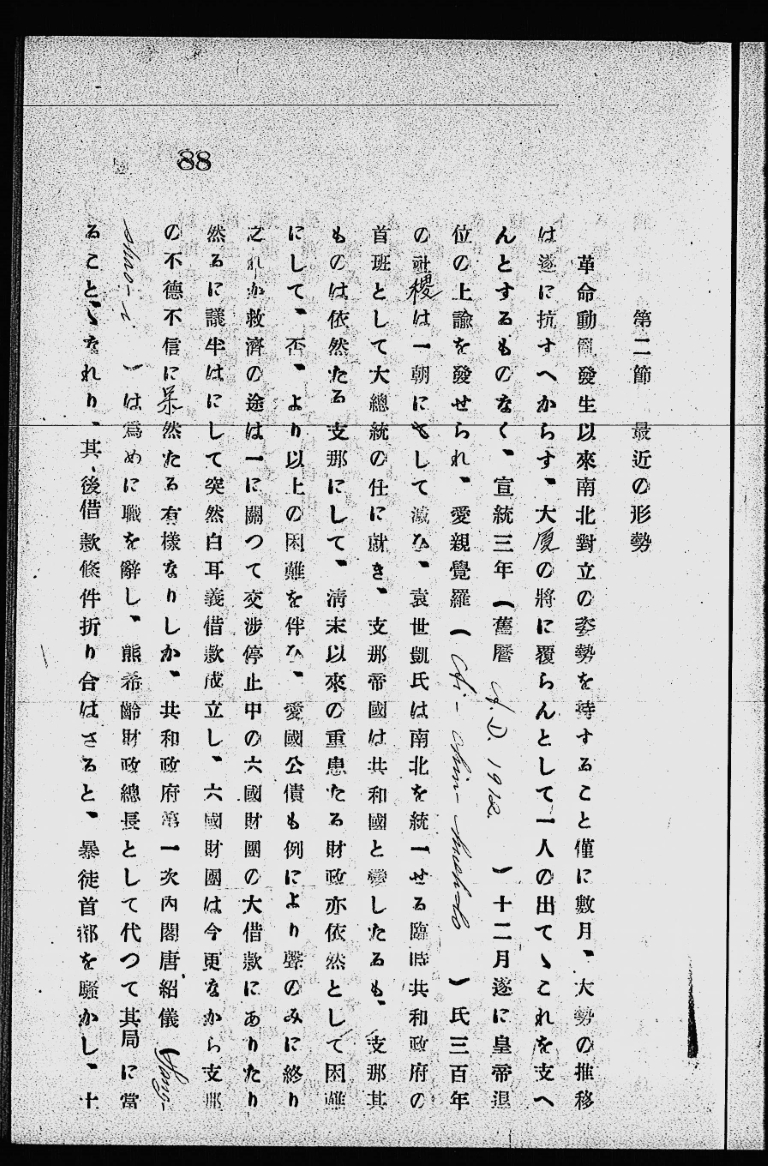 88
第二節 最近の形勢
革命動亂發生以來南北對立の姿勢を持すること僅に數月、大勢の推移
は遂に抗すへからす、大厦の將に覆らんとして一人の出てゝこれを支へ
んとするものなく、宣統三年(舊曆 A.D. 1912. )十二月遂に皇帝退
位の上諭を發せられ、愛親覺羅( )氏三百年
の社稷は一朝にして滅ひ、袁世凱氏は南北を統一せる臨時共和政府の
首班として大總統の任に就き、支那帝國は共和國と變したるも、支那其
ものは依然たる支那にして、淸末以來の重患たる財政亦依然として困難
にして、否、より以上の困難を伴ひ、愛國公債も例により聲のみに終り
之れか救濟の途は一に關つて交涉停止中の六國財團の大借款にありたり
然るに議半はにして突然白耳義借款成立し、六國財團は今更なから支那
の不德不信に呆然たる有樣なりしか、共和政府第一次內閣唐紹儀(
Shao-i )は爲めに職を辭し、熊希齡財政總長として代つて其局に當
ることゝなれり、其後借款條件折り合はさると、暴徒首都を騷かし、十